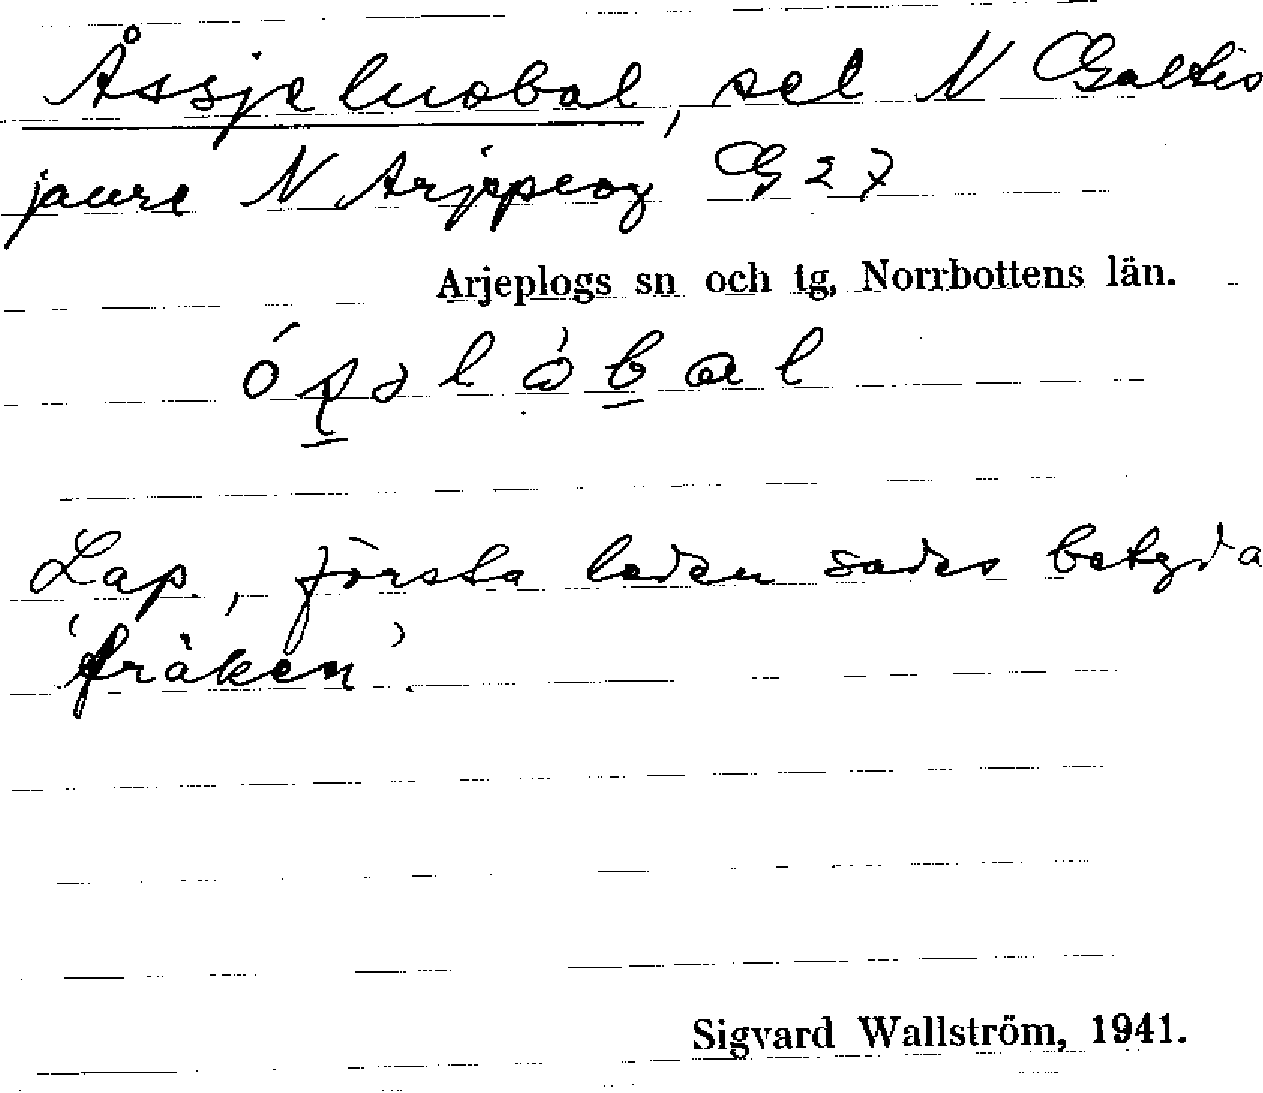 Åssjeluobal, sel N Galtis
jaure N Arjepeog G 27
Arjeplogs sn och tg, Norrbottens län.
Lap., första leden sades betyda
'fräken'.
Sigvard Wallström, 1941.